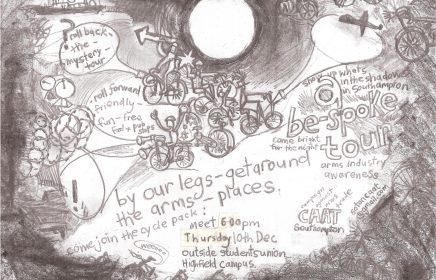 ?
roll back
- the -
mystery -
tour
- roll forward
friendly -
fun - free
show up what's
in the shadow
in Southampton
a
be-spoke
tour
come bright
for the night
arms industry
awareness
!
by our legs - get around
the arms - places.
come join the cycle pack:
meet 6:00pm
Thursday 10th Dec
outside students union
Highfield Campus.
campaign
against
arms
trade
CAAT
Southampton